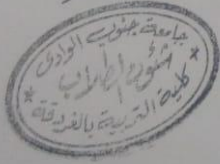 جامعة جنوب الوادى
شئون الطلاب
كلية التربية بالغردقة